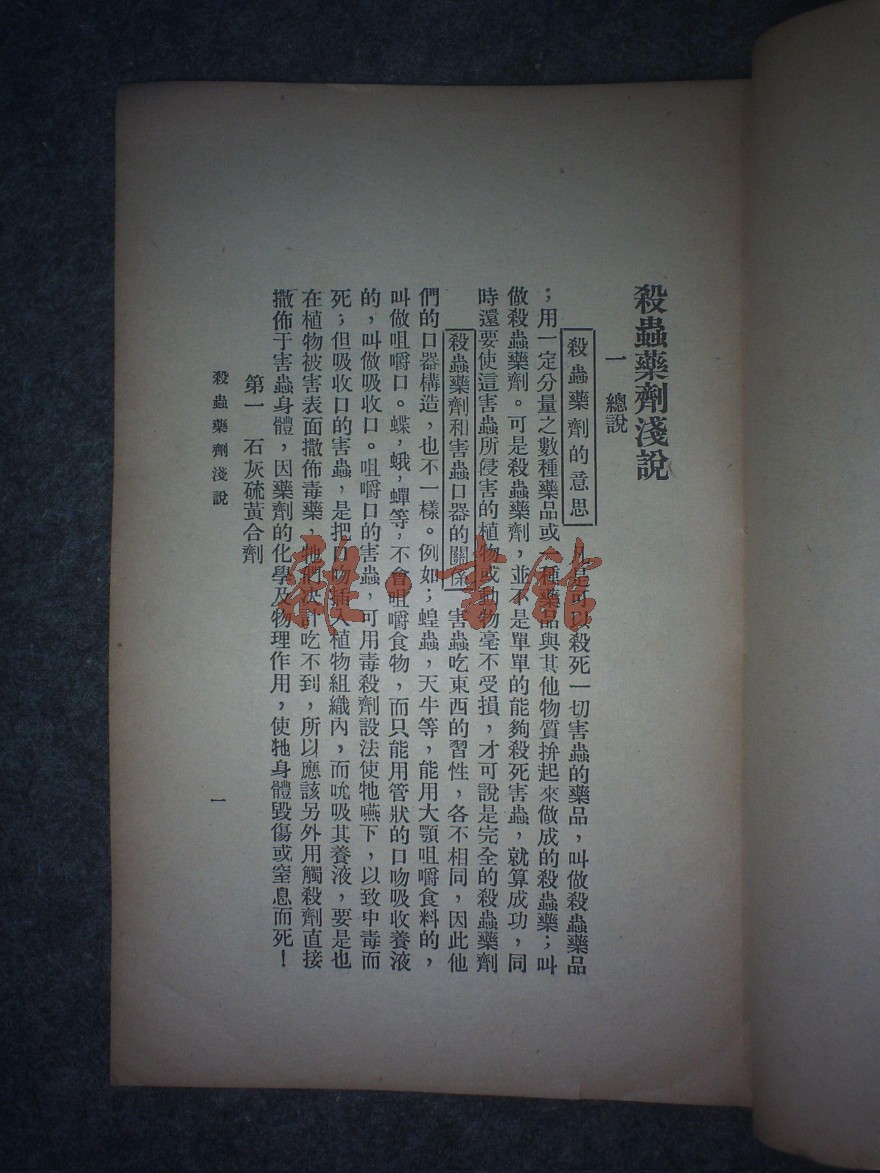 殺蟲藥劑淺說
一　總說
殺蟲藥劑的意思　凡是可以殺死一切害蟲的藥品，叫做殺蟲藥品
；用一定分量之數種藥品或一種藥品與其他物質拚起來做成的殺蟲藥；叫
做殺蟲藥劑。可是殺蟲藥劑，並不是單單的能夠殺死害蟲，就算成功，同
時還要使這害蟲所侵害的植物或動物毫不受損，才可說是完全的殺蟲藥劑
殺蟲藥劑和害蟲口器的關係　害蟲吃東西的習性，各不相同，因此他
們的口器構造，也不一樣。例如；蝗蟲，天牛等，能用大顎咀嚼食料的，
叫做咀嚼口。蝶，蛾，蟬等，不會咀嚼食物，而只能用管狀的口吻吸收養液
的，叫做吸收口。咀嚼口的害蟲，可用毒殺劑設法使牠嚥下，以致中毒而
死；但吸收口的害蟲，是把口吻插入植物組織內，而吮吸其養液，要是也
在植物被害表面撒佈毒藥，牠們決計吃不到，所以應該另外用觸殺劑直接
撒佈于害蟲身體，因藥劑的化學及物理作用，使牠身體毀傷或窒息而死！
第一　石灰硫黃合劑
殺蟲藥劑淺說
一
雜·書館